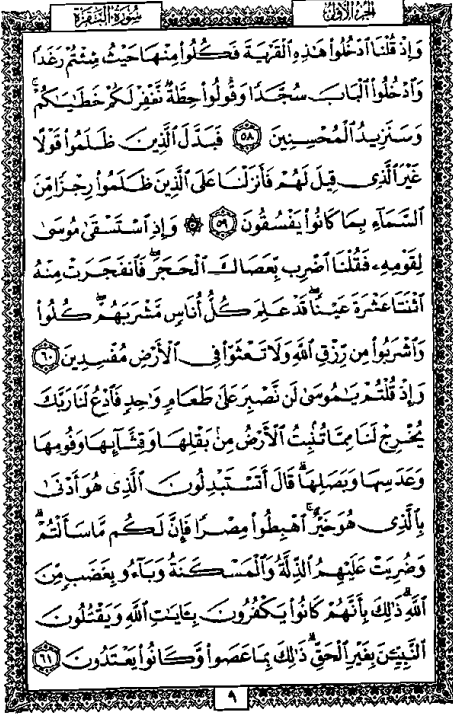 الجزء الأول سورة البقرة
وَإِذْ قُلْنَا ٱدْخُلُوا۟ هَٰذِهِ ٱلْقَرْيَةَ فَكُلُوا۟ مِنْهَا حَيْثُ شِئْتُمْ رَغَدًا
وَٱدْخُلُوا۟ ٱلْبَابَ سُجَّدًا وَقُولُوا۟ حِطَّةٌ نَّغْفِرْ لَكُمْ خَطَٰيَٰكُمْ ۚ
وَسَنَزِيدُ ٱلْمُحْسِنِينَ ٥٨ فَبَدَّلَ ٱلَّذِينَ ظَلَمُوا۟ قَوْلًا
غَيْرَ ٱلَّذِى قِيلَ لَهُمْ فَأَنزَلْنَا عَلَى ٱلَّذِينَ ظَلَمُوا۟ رِجْزًا مِّنَ
ٱلسَّمَآءِ بِمَا كَانُوا۟ يَفْسُقُونَ ٥٩ ۞ وَإِذِ ٱسْتَسْقَىٰ مُوسَىٰ
لِقَوْمِهِۦ فَقُلْنَا ٱضْرِب بِّعَصَاكَ ٱلْحَجَرَ ۖ فَٱنفَجَرَتْ مِنْهُ
ٱثْنَتَا عَشْرَةَ عَيْنًا ۖ قَدْ عَلِمَ كُلُّ أُنَاسٍ مَّشْرَبَهُمْ ۖ كُلُوا۟
وَٱشْرَبُوا۟ مِن رِّزْقِ ٱللَّهِ وَلَا تَعْثَوْا۟ فِى ٱلْأَرْضِ مُفْسِدِينَ ٦٠
وَإِذْ قُلْتُمْ يَٰمُوسَىٰ لَن نَّصْبِرَ عَلَىٰ طَعَامٍ وَٰحِدٍ فَٱدْعُ لَنَا رَبَّكَ
يُخْرِجْ لَنَا مِمَّا تُنۢبِتُ ٱلْأَرْضُ مِنۢ بَقْلِهَا وَقِثَّآئِهَا وَفُومِهَا
وَعَدَسِهَا وَبَصَلِهَا ۖ قَالَ أَتَسْتَبْدِلُونَ ٱلَّذِى هُوَ أَدْنَىٰ
بِٱلَّذِى هُوَ خَيْرٌ ۚ ٱهْبِطُوا۟ مِصْرًا فَإِنَّ لَكُم مَّا سَأَلْتُمْ ۗ
وَضُرِبَتْ عَلَيْهِمُ ٱلذِّلَّةُ وَٱلْمَسْكَنَةُ وَبَآءُو بِغَضَبٍ مِّنَ
ٱللَّهِ ۗ ذَٰلِكَ بِأَنَّهُمْ كَانُوا۟ يَكْفُرُونَ بِـَٔايَٰتِ ٱللَّهِ وَيَقْتُلُونَ
ٱلنَّبِيِّـۧنَ بِغَيْرِ ٱلْحَقِّ ۗ ذَٰلِكَ بِمَا عَصَوا۟ وَّكَانُوا۟ يَعْتَدُونَ ٦١
٩